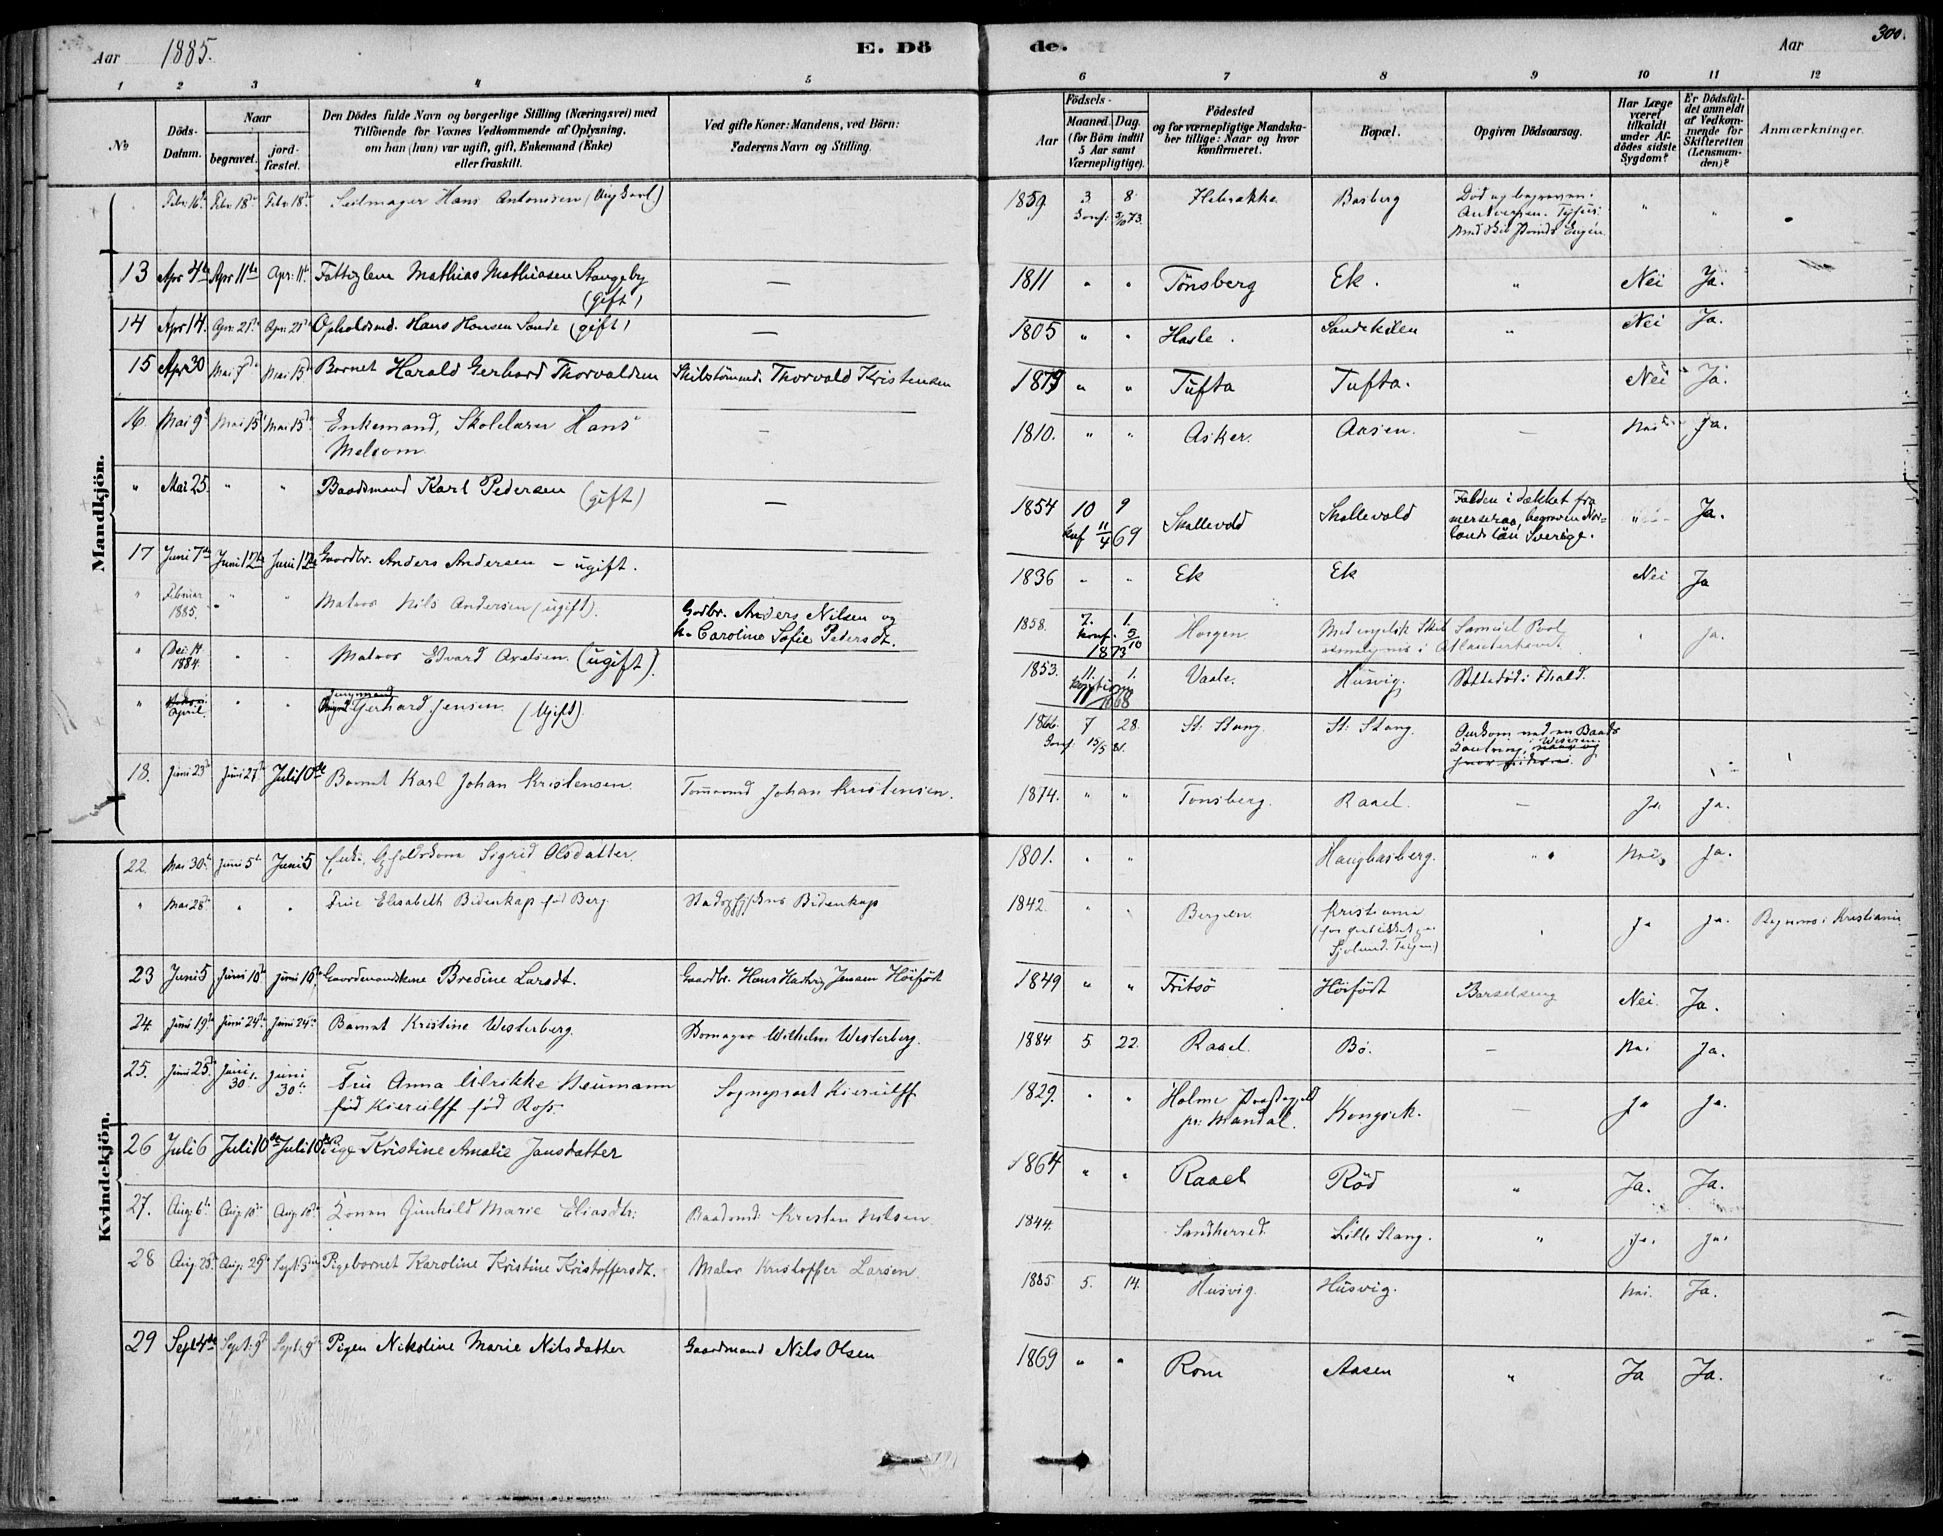 Aar 1885. E. Dö de. Aar 300.
1 2 3 4 5 6 7 8 9 10 11 12
No
Döds-Datum.
Naar
begravet.
jord-fæstet.
Den Dödes fulde Navn og borgerlige Stilling (Næringsvei) med
Tilföiende for Voxnes Vedkommende af Oplysning,
om han (hun) var ugift, gift, Enkemand (Enke)
eller fraskilt.
Ved gifte Koner: Mandens, ved Börn:
Faderens Navn og Stilling.
Födsels-
Aar
Maaned. Dag.
(for Börn indtil
5 Aar samt
Værnepligtige).
Födested
og for værnepligtige Mandska-
ber tillige: Naar og hvor
konfirmeret.
Bopæl.
Opgiven Dödsaarsag.
Har Læge
været
tilkaldt
under Af-
dödes sidste
Sygdom?
Er Dödsfal-
det anmeldt
af Vedkom-
mende for
Skifteretten
(Lensman-
den)?
Anmærkninger.
Mandkjön.
Febr. 16de Febr. 18de Febr. 18de Seilmager Hans Antonisen 1859 3 8 Basberg Död og begraven i
Konf. 5/10 73. Antverpen.
13 Apr 4de Apr 11te Apr. 11te Fattiglem Mathias Mathiasen Stangeby — 1811 " " Tönsberg Ek. " Nei Ja.
(gift)
14 Apr 14. Apr. 21de Apr. 21de Opholdsmd. Hans Hansen Sande (gift) — 1805 " " Hasle. Sandekilen " Nei Ja.
15 Apr 30 Mai 7de Mai 15de Barnet Harald Gerhard Thorvaldsen Skibstömmd. Thorvald Kristensen 1879 " " Tufta Tufta. Nei Ja.
16. Mai 9de Mai 15de Mai 15de Enkemand, Skolelærer Hans — 1810. " " Asker. Aasen. — Nei Ja.
Melsom
" Mai 25. " " Baadsmand Karl Pedersen (gift) — 1854 10 9 Skallevold Skallevold Falden i dækket fra Ja.
Konf 11/4 69 merseraa, begraven Nor-
landslän Sverige.
17 Juni 7de Juni 12te Juni 12te Gaardbr. Anders Andersen – ugift. 1836 " " Ek Ek Nei Ja
" Februar " " Matros Nils Andersen (ugift). Gdbr. Anders Nilsen og 1858. 7. 1. Horgen Med engelsk Skib Samuel
1885. h. Caroline Sofie Pedersdt. Konf. 5/10 i Atlanterhavet. Ja.
1873
" Dec. 14 " " Matros Edvard Axelsen. (ugift). 1853. 11. 1. Vaale. Husvig.
1884.
" April. " " Jungmand
Gerhard Jensen (Ugift). 7 28. St: Stang. St: Stang. Omkom ved en Baads
Konf: 15/5 81. kantring i Weseren
18. Juni 23de Juni 27de Juli 10de Barnet Karl Johan Kristensen Tömmermd Johan Kristensen. 1874. " " Tönsberg. Raael. — Ja. Ja.
Kvindekjön.
22. Mai 30te Juni 5te Juni 5 Sigrid Olsdatter. 1801. " " Haugbasberg. " Nei, Ja.
" Mai 28de " " Frue Elisabeth Bidenkap föd Berg. Bidenkap 1842. " " Bergen. Kristiania Ja Ja. Begraven i Kristiania
23 Juni 5 Juni 10de Juni 10de Gaardmandskone Bredine Larsdt. Gaardbr. Hans Hartvig Jensen Höifödt 1849 " " Fritsö Höifödt Barselseng Nei. Ja.
24. Juni 19de Juni 24de Juni 24de Barnet Kristine Westerberg. Skomager Wilhelm Westerberg. 1884 5. 22. Raael. Bö. — Nei Ja.
25. Juni 25de Juni Juni Frue Anna Ulrikke Neumann Sogneprest Kierulff 1829. " " Holme Præstegjeld Kongseik. — Ja Ja.
30te 30te föd Kierulff föd Ross. pr. Mandal.
26 Juli 6 Juli 10de Juli 10de Pige Kristine Amalie Jansdatter 1864 " " Raael Röd " Ja. Ja.
27. Aug. 6te Aug. 10de Aug. 10de Konen Gunhild Marie Eliasdtr. Baadsmd: Kristen Nilsen. 1844. Sandherred. Lille Stang. " Ja. Ja.
28 Aug 25de Aug. 29de Sept. Pigebarnet Karoline Kristine Kristoffersdt. Maler Kristoffer Larsen 1885 5. 14. Husvig. Husvig. Nei. Ja.
29 Sept 4de Sept. 9de Sept. 9de Pigen Nikoline Marie Nilsdatter Gaardmand Nils Olsen 1869 " " Rom Aasen " Ja Ja.